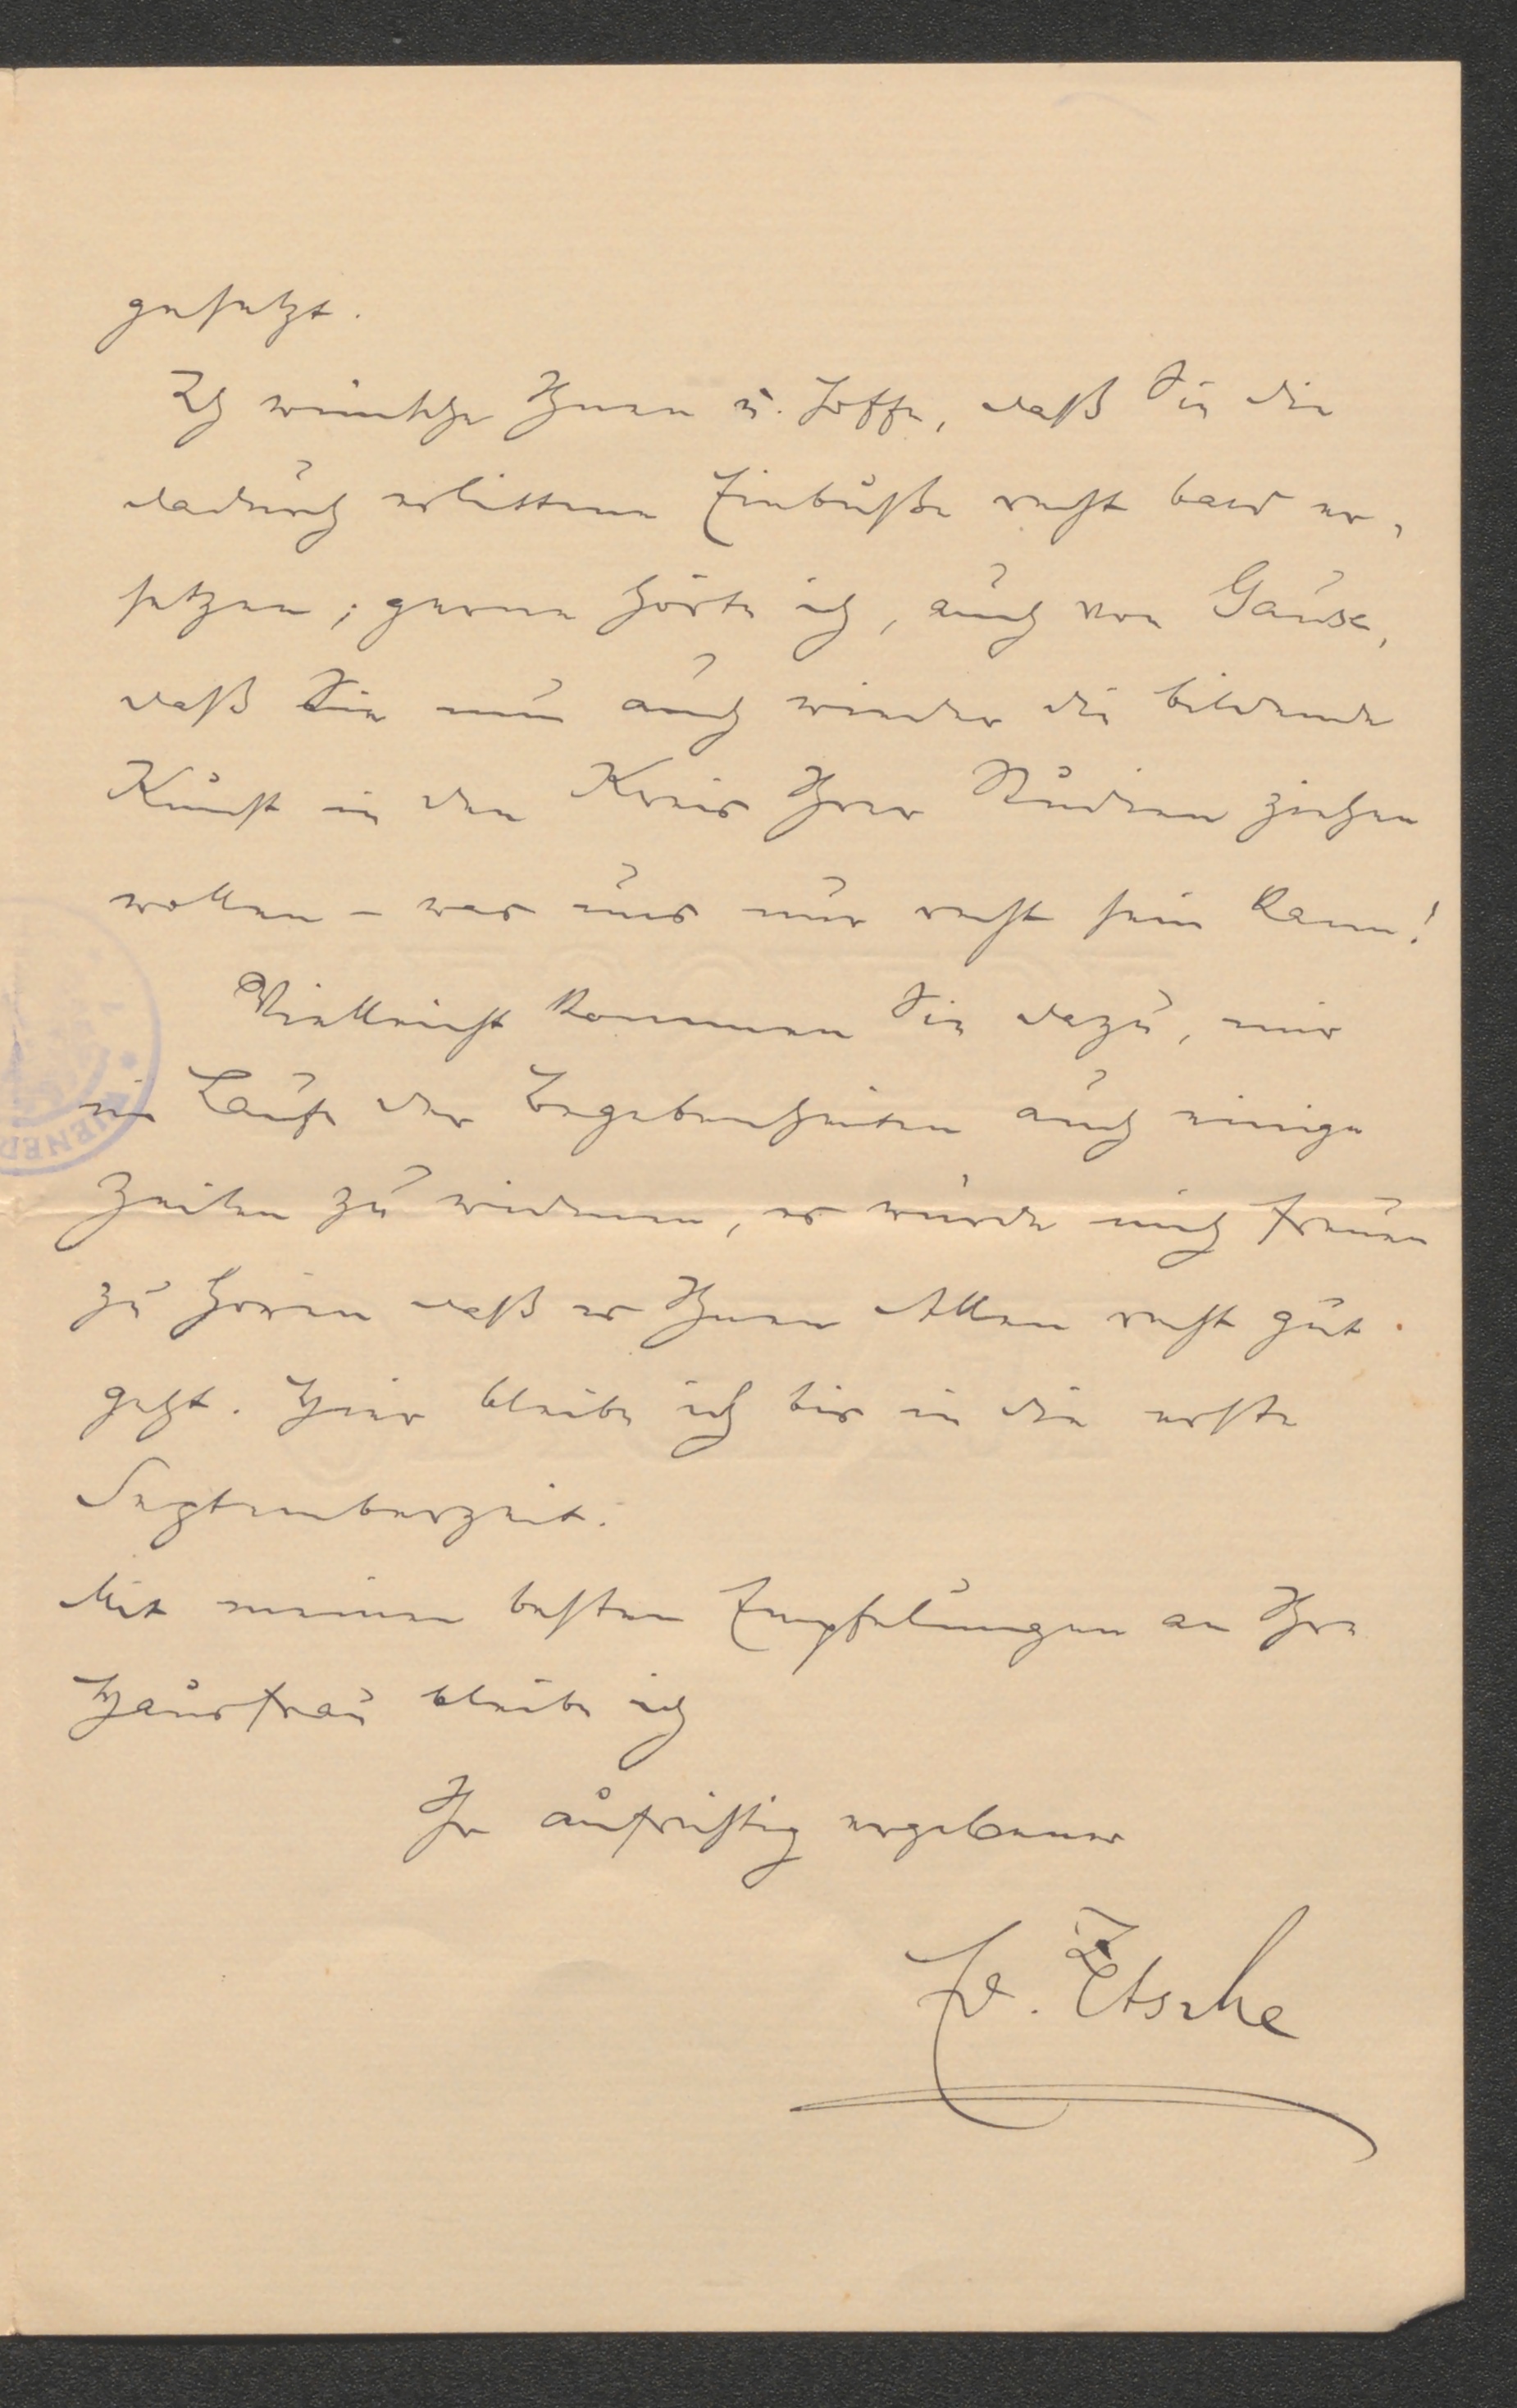 gesetzt.
Ich wünsche Ihnen u. hoffe, daß Sie die
dadurch erlittene Einbuße recht bald er-
setzen; gerne hörte ich, auch von Gause,
daß Sie nun auch wieder die bildende
Kunst in den Kreis Ihrer Studien ziehen
wollen – was uns nur recht sein kann!
Vielleicht kommen Sie dazu, mir
im Laufe der Begebenheiten auch einige
Zeilen zu widmen, es würde mich freuen
zu hören daß es Ihnen Allen recht gut
geht. Hier bleibe ich bis in die erste
Septemberzeit.
Mit meinen besten Empfelungen an Ihre
Hausfrau bleibe ich
Ihr aufrichtig ergebener